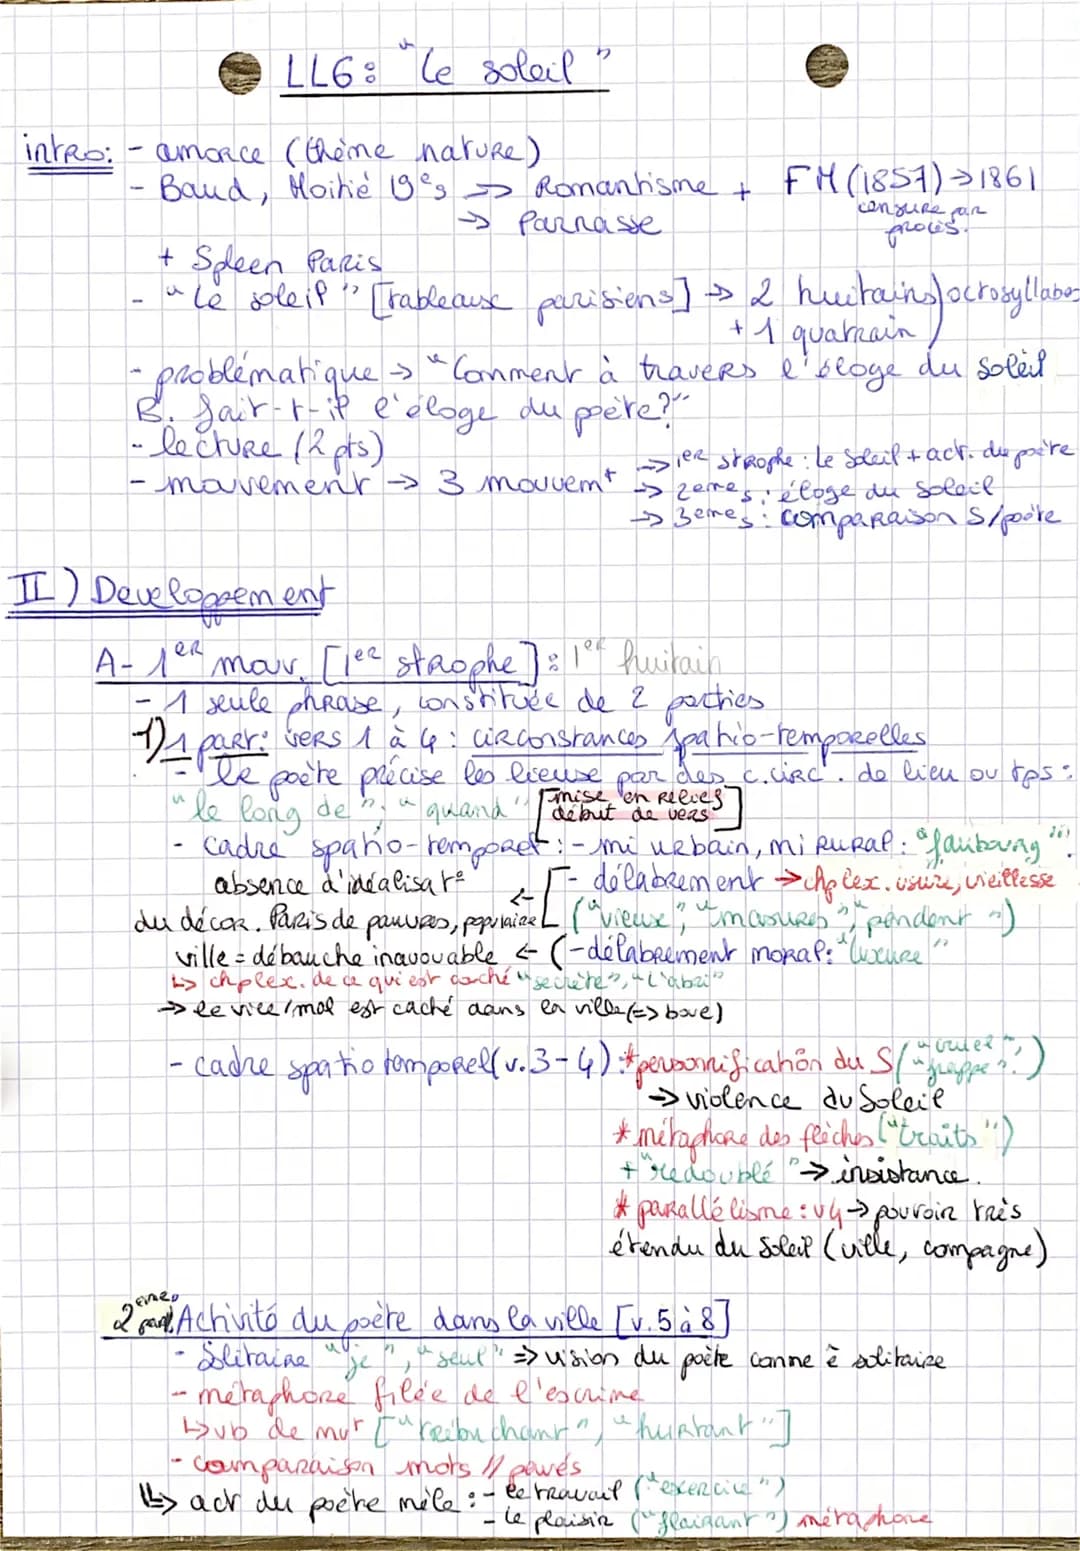 LL6: "Le soleil"
intro: - amorce (thème nature)
- Baud, Moitié 19e s => Romantisme + FM (1857) → 1861
censure par
procès.
→ Parnasse
+ Spleen Paris
- "Le soleil" [tableaux parisiens] → 2 huitains) octosyllabes
+ 1 quatrain
- problématique → "Comment à travers l'éloge du soleil
B. fait-t-il l'éloge du poète?"
- lecture (2 pts)
- mouvement → 3 mouvemt → 1er strophe : le soleil + act. du poète
→ 2eme s : éloge du soleil
→ 3eme s : comparaison S/poète
II) Developpement
A- 1er mouv. [1er strophe] : 1er huitain
- 1 seule phrase, constituée de 2 parties
1) 1 part: vers 1 à 4 : circonstances spatio-temporelles
- le poète précise les lieuse par des c.circ. de lieu ou tps :
"le long de"; "quand" [mise en relief
début de vers]
- cadre spatio-temporel : - mi urbain, mi rural : "faubourg".
absence d'idéalisat° ← [- délabrement → chp lex. usure, vieillesse
du décor. Paris de pauvres, populaire ("vieux", "masures", "pendent")
ville = débauche inavouable ← (- délabrement moral : "luxure"
↳ chplex. de ce qui est caché "secrète", "l'abri"
→ le vice/mal est caché dans la ville (=> boue)
- cadre spatio temporel (v.3-4) : *personnification du S ("cruel", "frappe")
→ violence du Soleil
* métaphore des flèches ("traits")
+ "redoublé" → insistance.
* parallélisme : v4 → pouvoir très
étendu du soleil (ville, compagne)
2eme part. Activité du poète dans la ville [v.5 à 8]
- Solitaire "je", "seul" => vision du poète comme ê solitaire
- métaphore filée de l'escrime
↳ vb de mvt ["trébuchant", "hurtant"]
- comparaison mots // pavés
↳ act du poète mêle : - le travail ("exercice")
- le plaisir ("flairant") métaphore